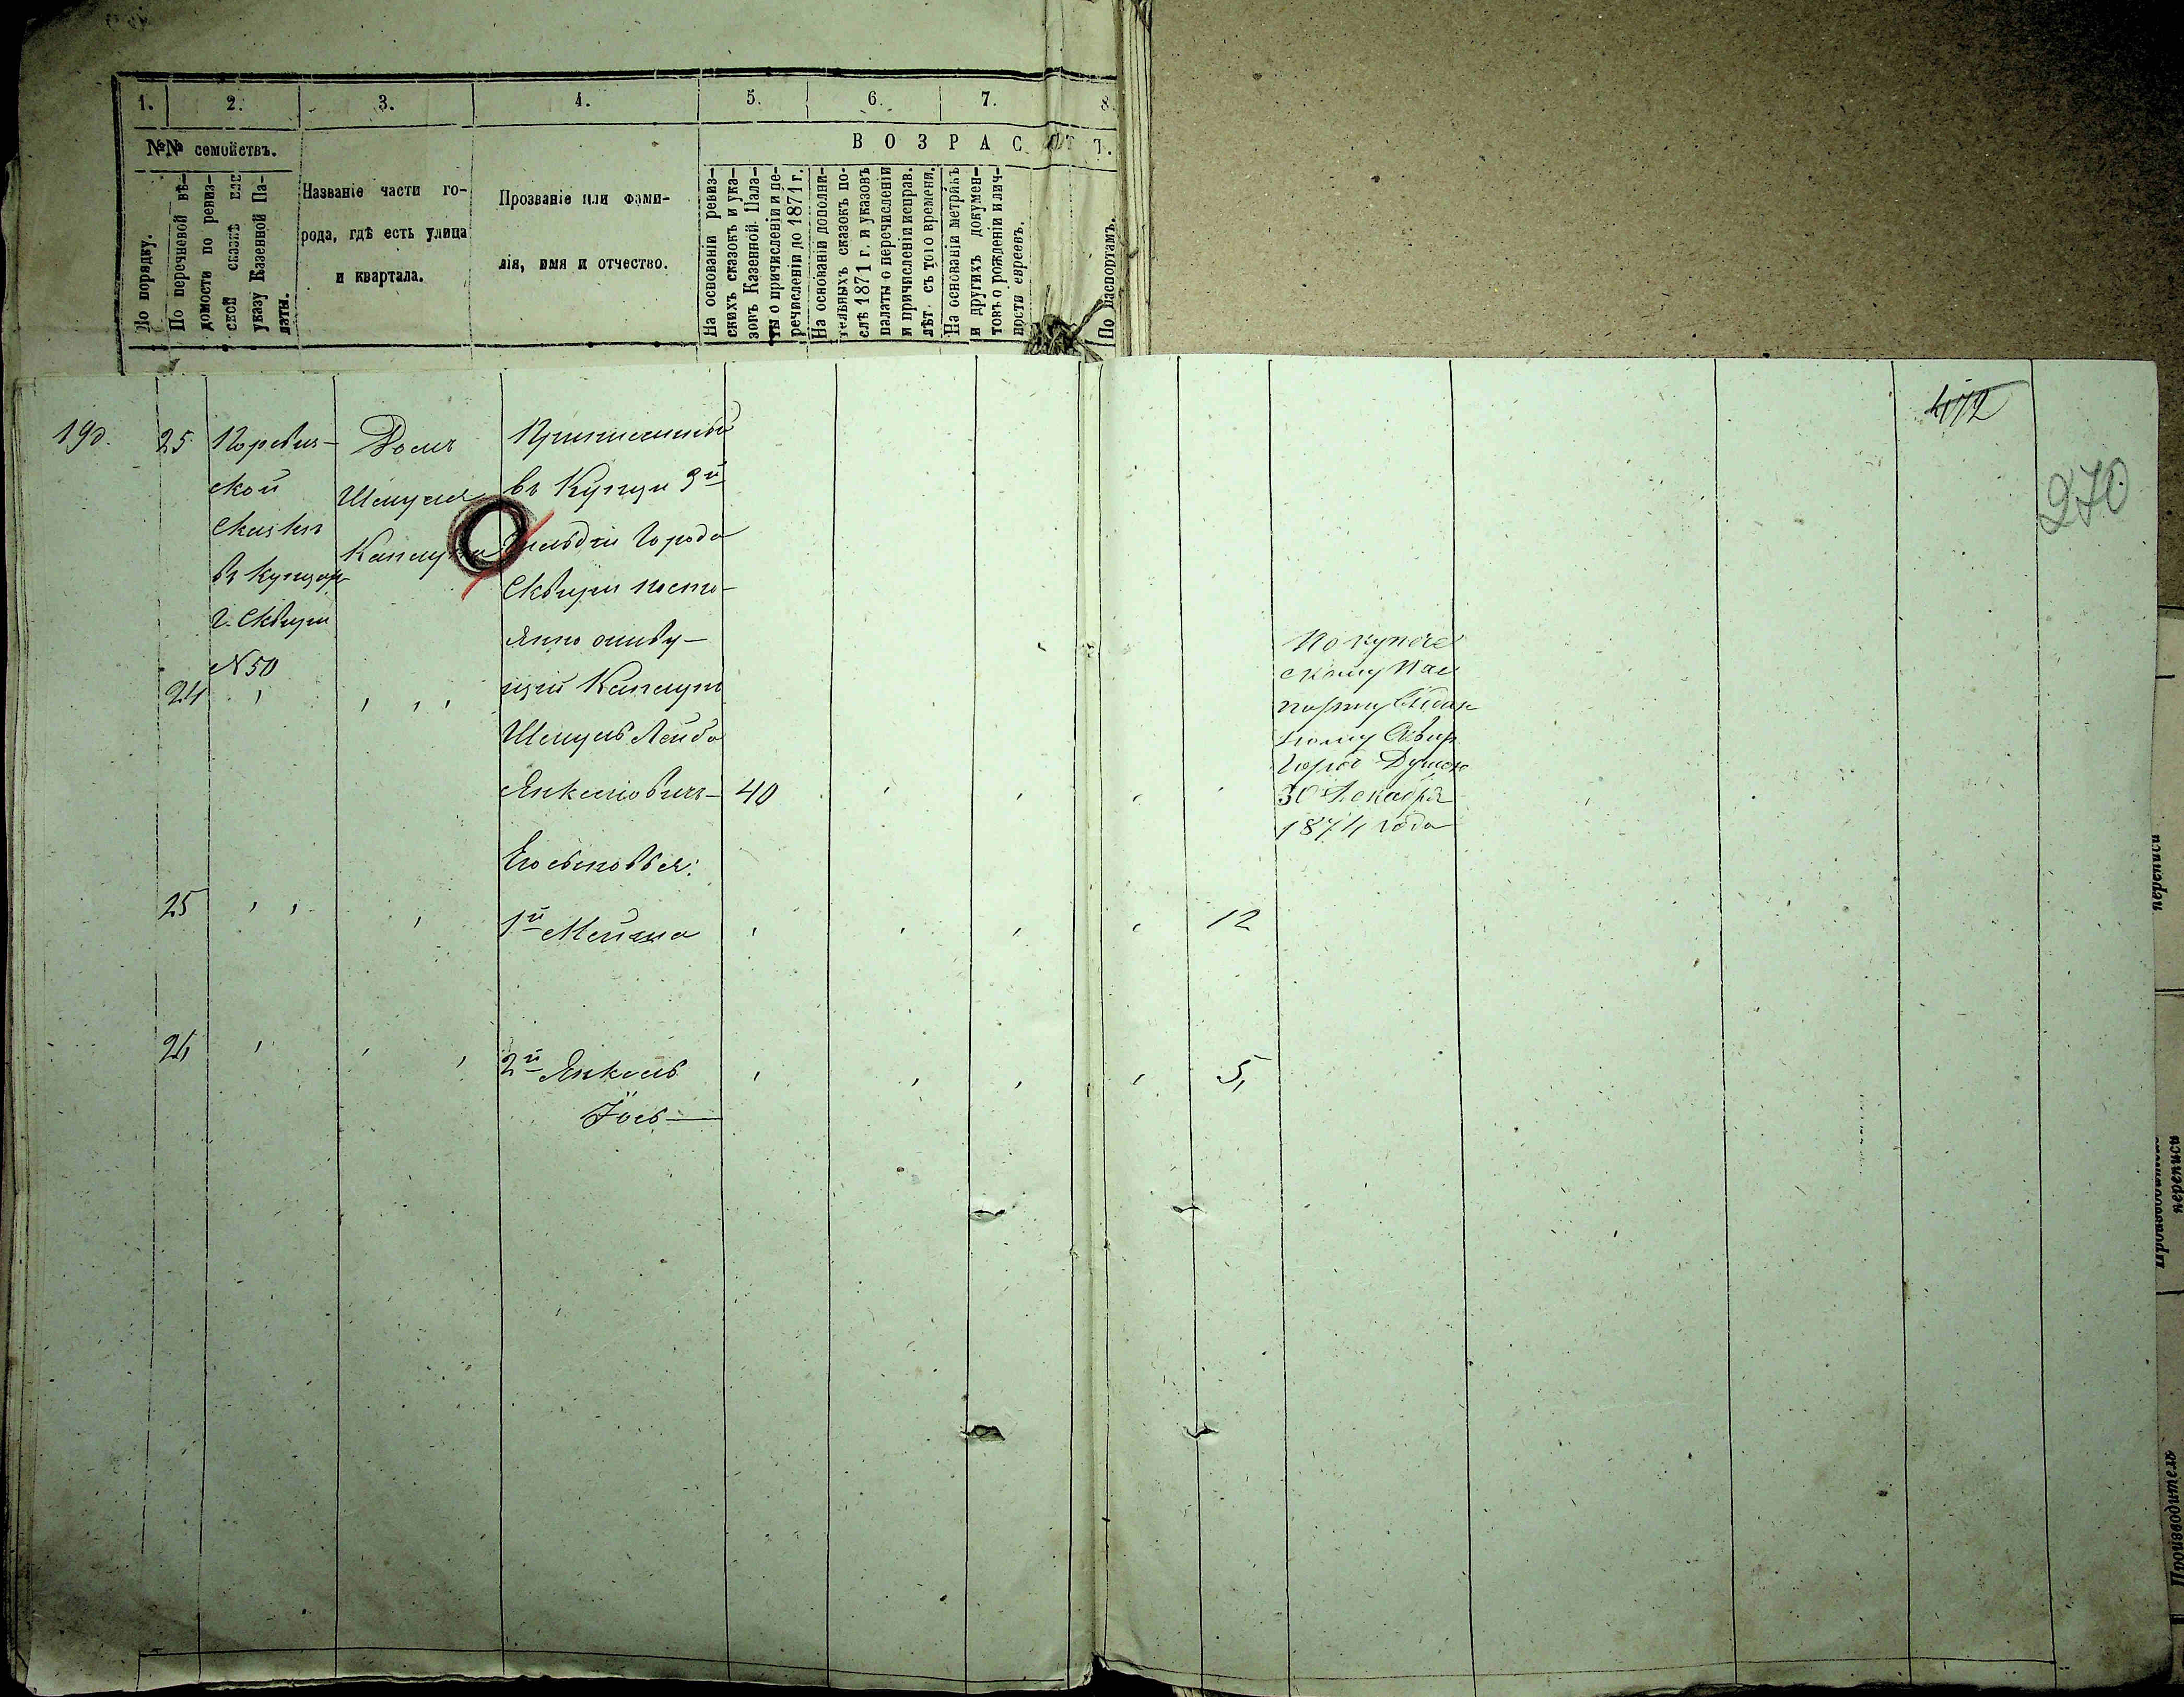 1. 2. 3. 4. 5. 6. 7. 8.
№№ семействъ.
В О З Р А С Т Ъ.
По порядку.
По перечневой вѣ-
домости по ревиз-
ской сказкѣ или
указу Казенной Па-
латы.
Названіе части го-
рода, гдѣ есть улица
и квартала.
Прозваніе или фами-
лія, имя и отчество.
На основаніи ревиз-
скихъ сказокъ и ука-
зовъ Казенной Пала-
ты о причисленіи и пе-
речисленіи до 1871 г.
На основаніи дополни-
тельныхъ сказокъ по-
слѣ 1871 г. и указовъ
палаты о перечисленіи
и причисленіи исправ.
лѣт. съ того времени.
На основаніи метрикъ
и другихъ докумен-
товъ о рожденіи и лич-
ности евреевъ.
По паспортамъ.
472
270
190. 25
По ревиз-
ской
сказкѣ
въ купцахъ
г. Сквиры
№ 50
Домъ
Шмуля
Каплуна
въ Купцы 3й
Гильдіи Города
Сквири посто-
янно живу-
щій Каплунъ
Шмуль Лейба
Янкелiовичъ — 40
24
По купече
скому Пас
порту
30 Декабря
1874 года
Его сыновья:
25 1й 12
26 2й Янкель 5,
Іось —
переписи
Производитель
переписи
Производитель